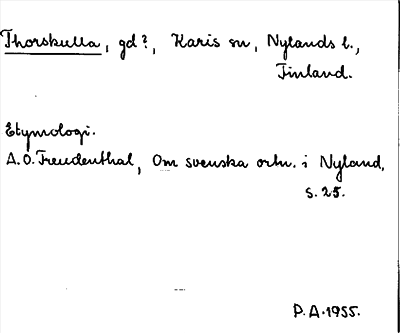 Thorskulla, gd?, Karis sn, Nylands l.,
Finland.
Etymologi.
A.O. Freudenthal, Om svenska ortn. i Nyland,
s. 25.
P.A. 1955.